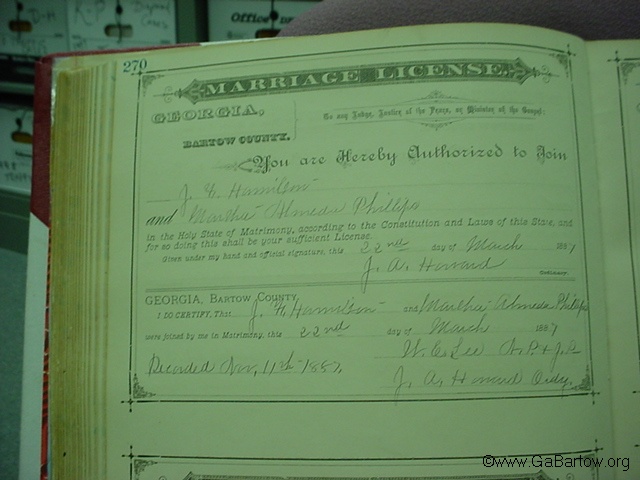 270
MARRIAGE LICENSE.
GEORGIA,
BARTOW COUNTY.
To any Judge, Justice of the Peace, or Minister of the Gospel:
You are Hereby Authorized to Join
J. Hamilson
and Martha Almeda Phillips
in the Holy State of Matrimony, according to the Constitution and Laws of this State, and
for so doing this shall be your sufficient License.
Given under my hand and official signature, this 22nd day of March 1887
J. A. Howard
Ordinary.
GEORGIA, BARTOW COUNTY
I DO CERTIFY, That J. H. Hamilson and Martha Almeda Phillips
were joined by me in Matrimony, this 22nd day of March 1887
W. C. Lee N. P. & J. P.
Recorded Nov, 11th 1887, J. A. Howard Ordy.
©www.GaBartow.org